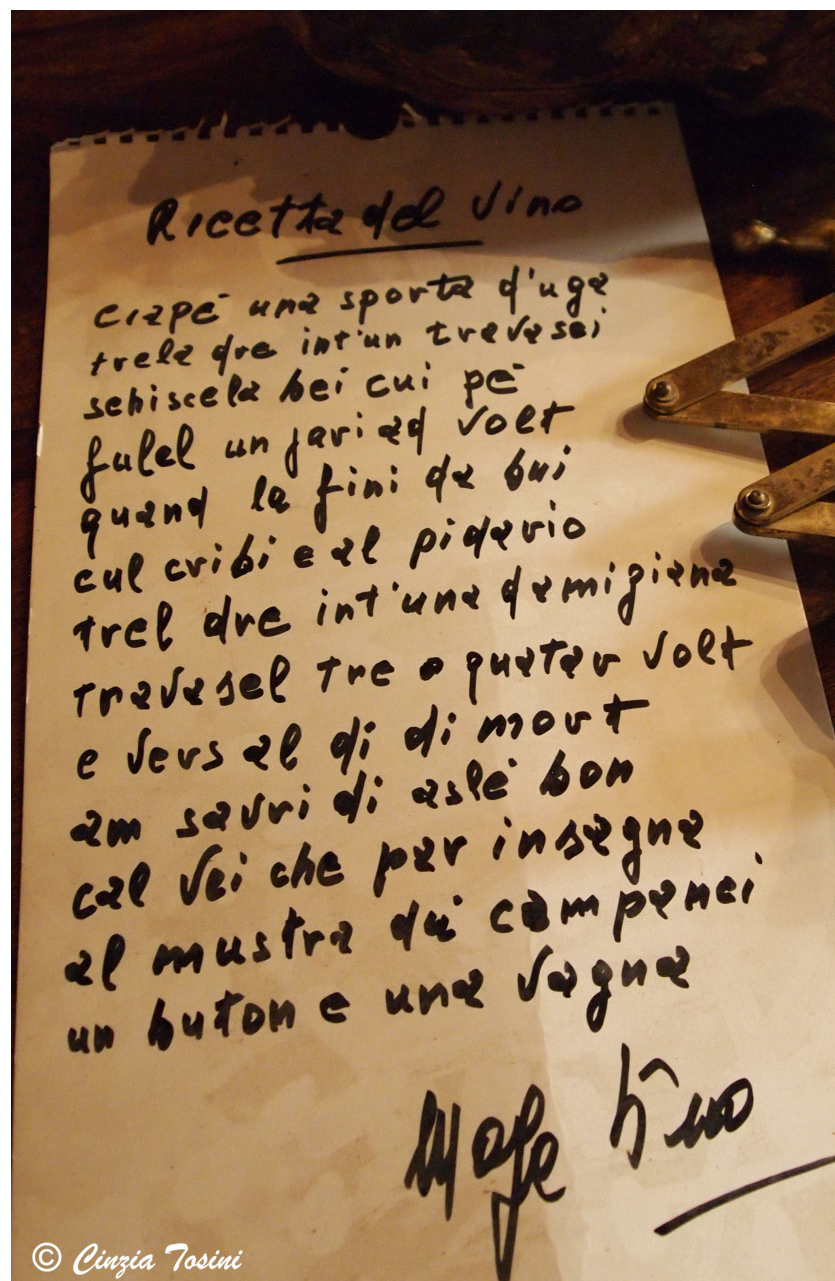 Ricetta del Vino
ciapè una sporta d'uga
trela dre int'un travasei
schiscela bei cui pè
fulel un pari ad volt
quand la fini da bui
cul cribi e al pidario
trel dre int'una damigiana
travasel tre o quatar volt
e vers al di di mort
am savri di aslè bon
cal vei che par insegna
al mustra dü campanei
un buton e una vagna
© Cinzia Tosini